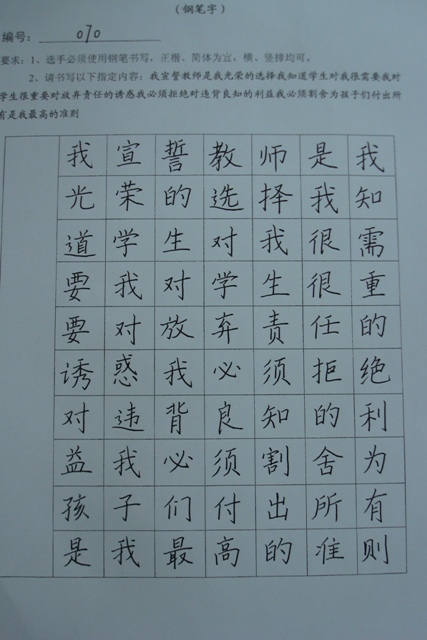 （钢笔字）
编号： 070
要求：1、选手必须使用钢笔书写，正楷、简体为宜，横、竖排均可。
2、请书写以下指定内容：我宣誓教师是我光荣的选择我知道学生对我很需要我对
学生很重要对放弃责任的诱惑我必须拒绝对违背良知的利益我必须割舍为孩子们付出所
有是我最高的准则
我宣誓教师是我
光荣的选择我知
道学生对我很需
要我对学生很重
要对放弃责任的
诱惑我必须拒绝
对违背良知的利
益我必须割舍为
孩子们付出所有
是我最高的准则